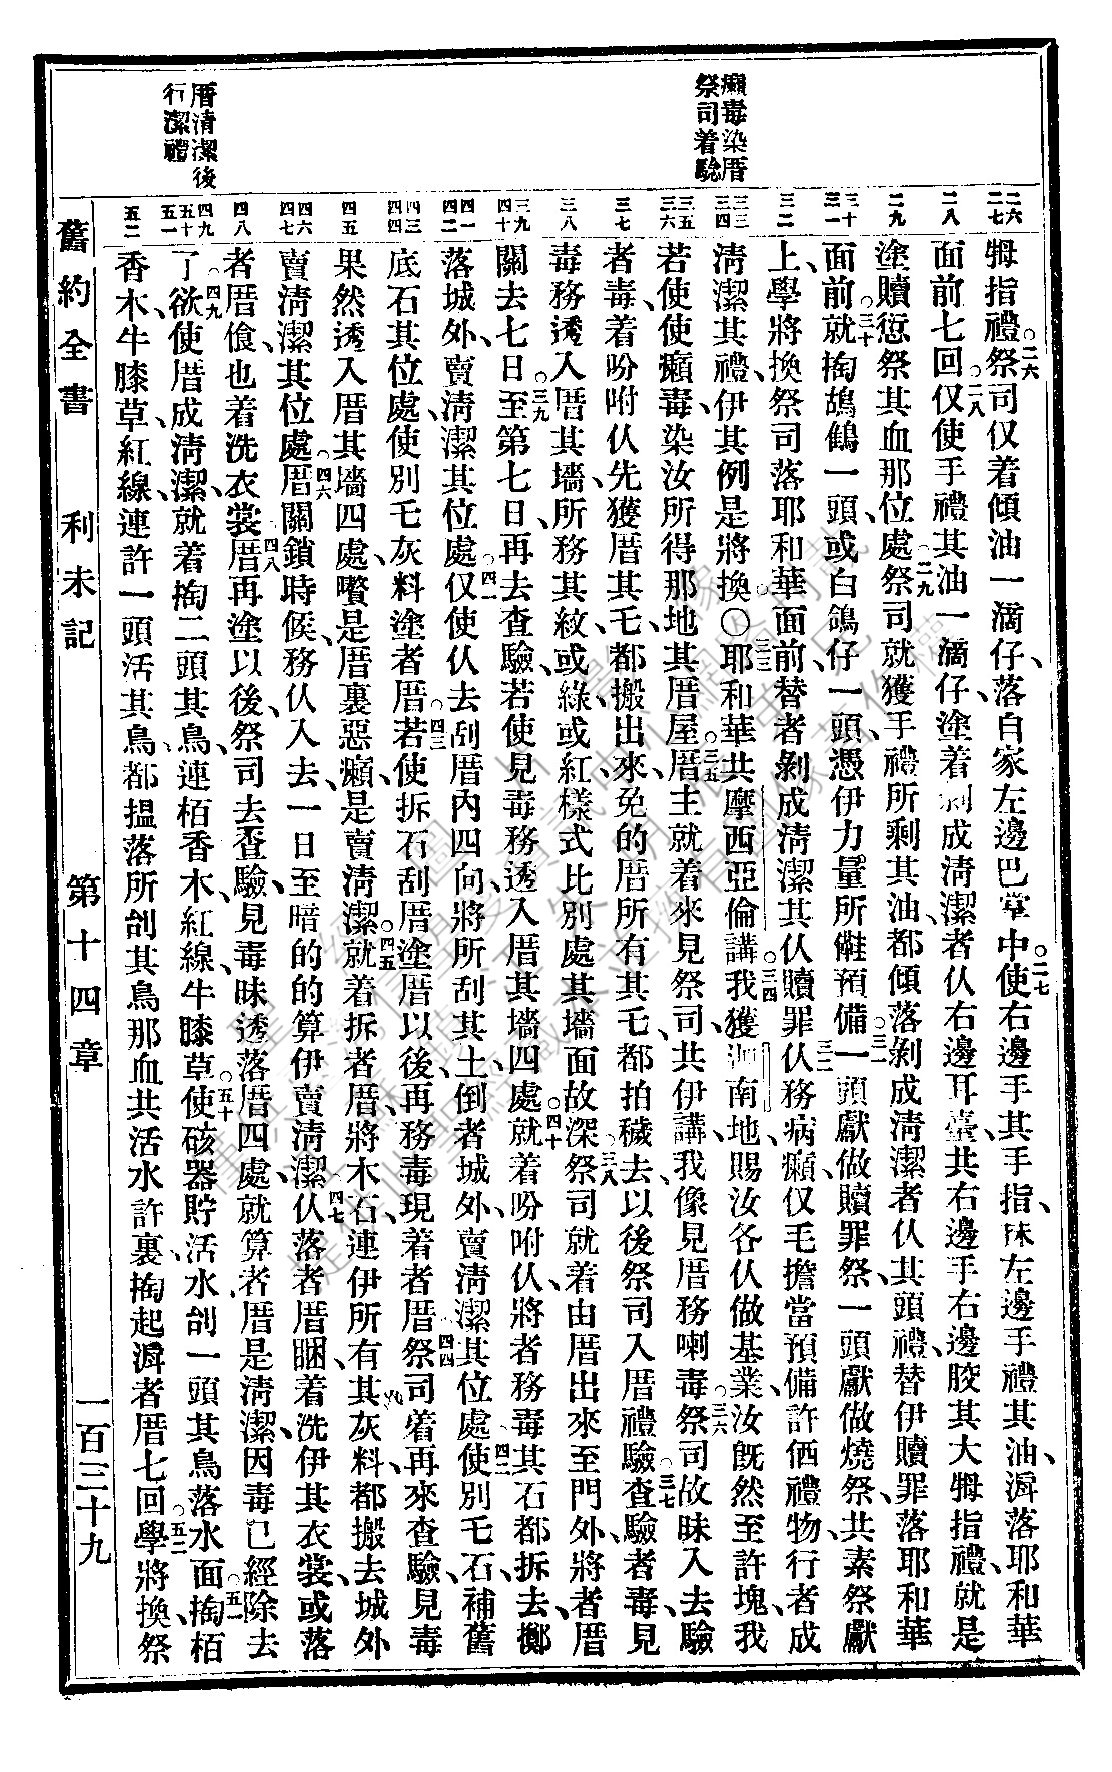 癩毒染厝
祭司着騐
厝清潔後
行潔禮
二六
二七
二八
二九
三十
三一
三二
三三
三四
三五
三六
三七
三八
三九
四十
四一
四二
四三
四四
四五
四六
四七
四八
四九
五十
五一
五二
姆指禮、○二六祭司仅着傾油一滴仔、落自家左邊巴掌中、○二七使右邊手其手指、抹左邊手禮其油、㴙落耶和華
面前七回、○二八仅使手禮其油一滴仔、塗着剃成清潔者仈右邊耳臺、共右邊手右邊胶其大姆指禮、就是
塗贖愆祭其血那位處、○二九祭司就獲手禮所剩其油、都傾落剃成清潔者仈其頭禮、替伊贖罪、落耶和華
面前、○三十就掏鴣鶴一頭、或白鴿仔一頭、憑伊力量所儺預備、○三一一頭獻做贖罪祭、一頭獻做燒祭、共素祭獻
上、學將換祭司落耶和華面前、替者剃成清潔其仈贖罪、○三二仈務病癩、仅毛擔當預備許価禮物、行者成
清潔其禮、伊其例是將換。○○三三耶和華共摩西亞倫講、○三四我獲迦南地、賜汝各仈做基業、汝既然至許塊、我
若使使癩毒染汝所得那地其厝屋、○三五厝主就着來見祭司、共伊講、我像見厝務喇毒、○三六祭司故昧入去驗
者毒、着吩咐仈先獲厝其乇、都搬出來、免的厝所有其乇、都拍穢去、以後祭司入厝禮驗、○三七查驗者毒、見
毒務透入厝其墻、所務其紋、或綠或紅、樣式比別處其墻面故深、○三八祭司就着由厝出來、至門外、將者厝
關去七日、○三九至第七日、再去查驗、若使見毒務透入厝其墻四處、○四十就着吩咐仈、將者務毒其石都拆去、擲
落城外、賣清潔其位處、○四一仅使仈去刮厝內四向、將所刮其土、倒者城外、賣清潔其位處、○四二使別乇石、補舊
底石其位處、使別乇灰料塗者厝、○四三若使拆石刮厝塗厝以後、再務毒現着者厝、○四四祭司着再來查驗、見毒
果然透入厝其墻四處、嚽是厝裏惡癩、是賣清潔、○四五就着拆者厝、將木石、連伊所有其灰料、都搬去城外
賣清潔其位處、○四六厝關鎖時候、務仈入去、一日至暗的的算伊賣清潔、○四七仈落者厝睏、着洗伊其衣裳、或落
者厝飡、也着洗衣裳、○四八厝再塗以後、祭司去查驗、見毒昧透落厝四處、就算者厝是清潔、因毒已經除去
了、○四九欲使厝成清潔、就着掏二頭其鳥、連栢香木、紅線、牛膝草、○五十使磁器貯活水、刣一頭其鳥落水面、○五一掏栢
香木、牛膝草、紅線、連許一頭活其鳥、都搵落所刣其鳥那血共活水許裏、掏起㴙者厝七回、○五二學將換、祭
舊約全書 利未記 第十四章 一百三十九